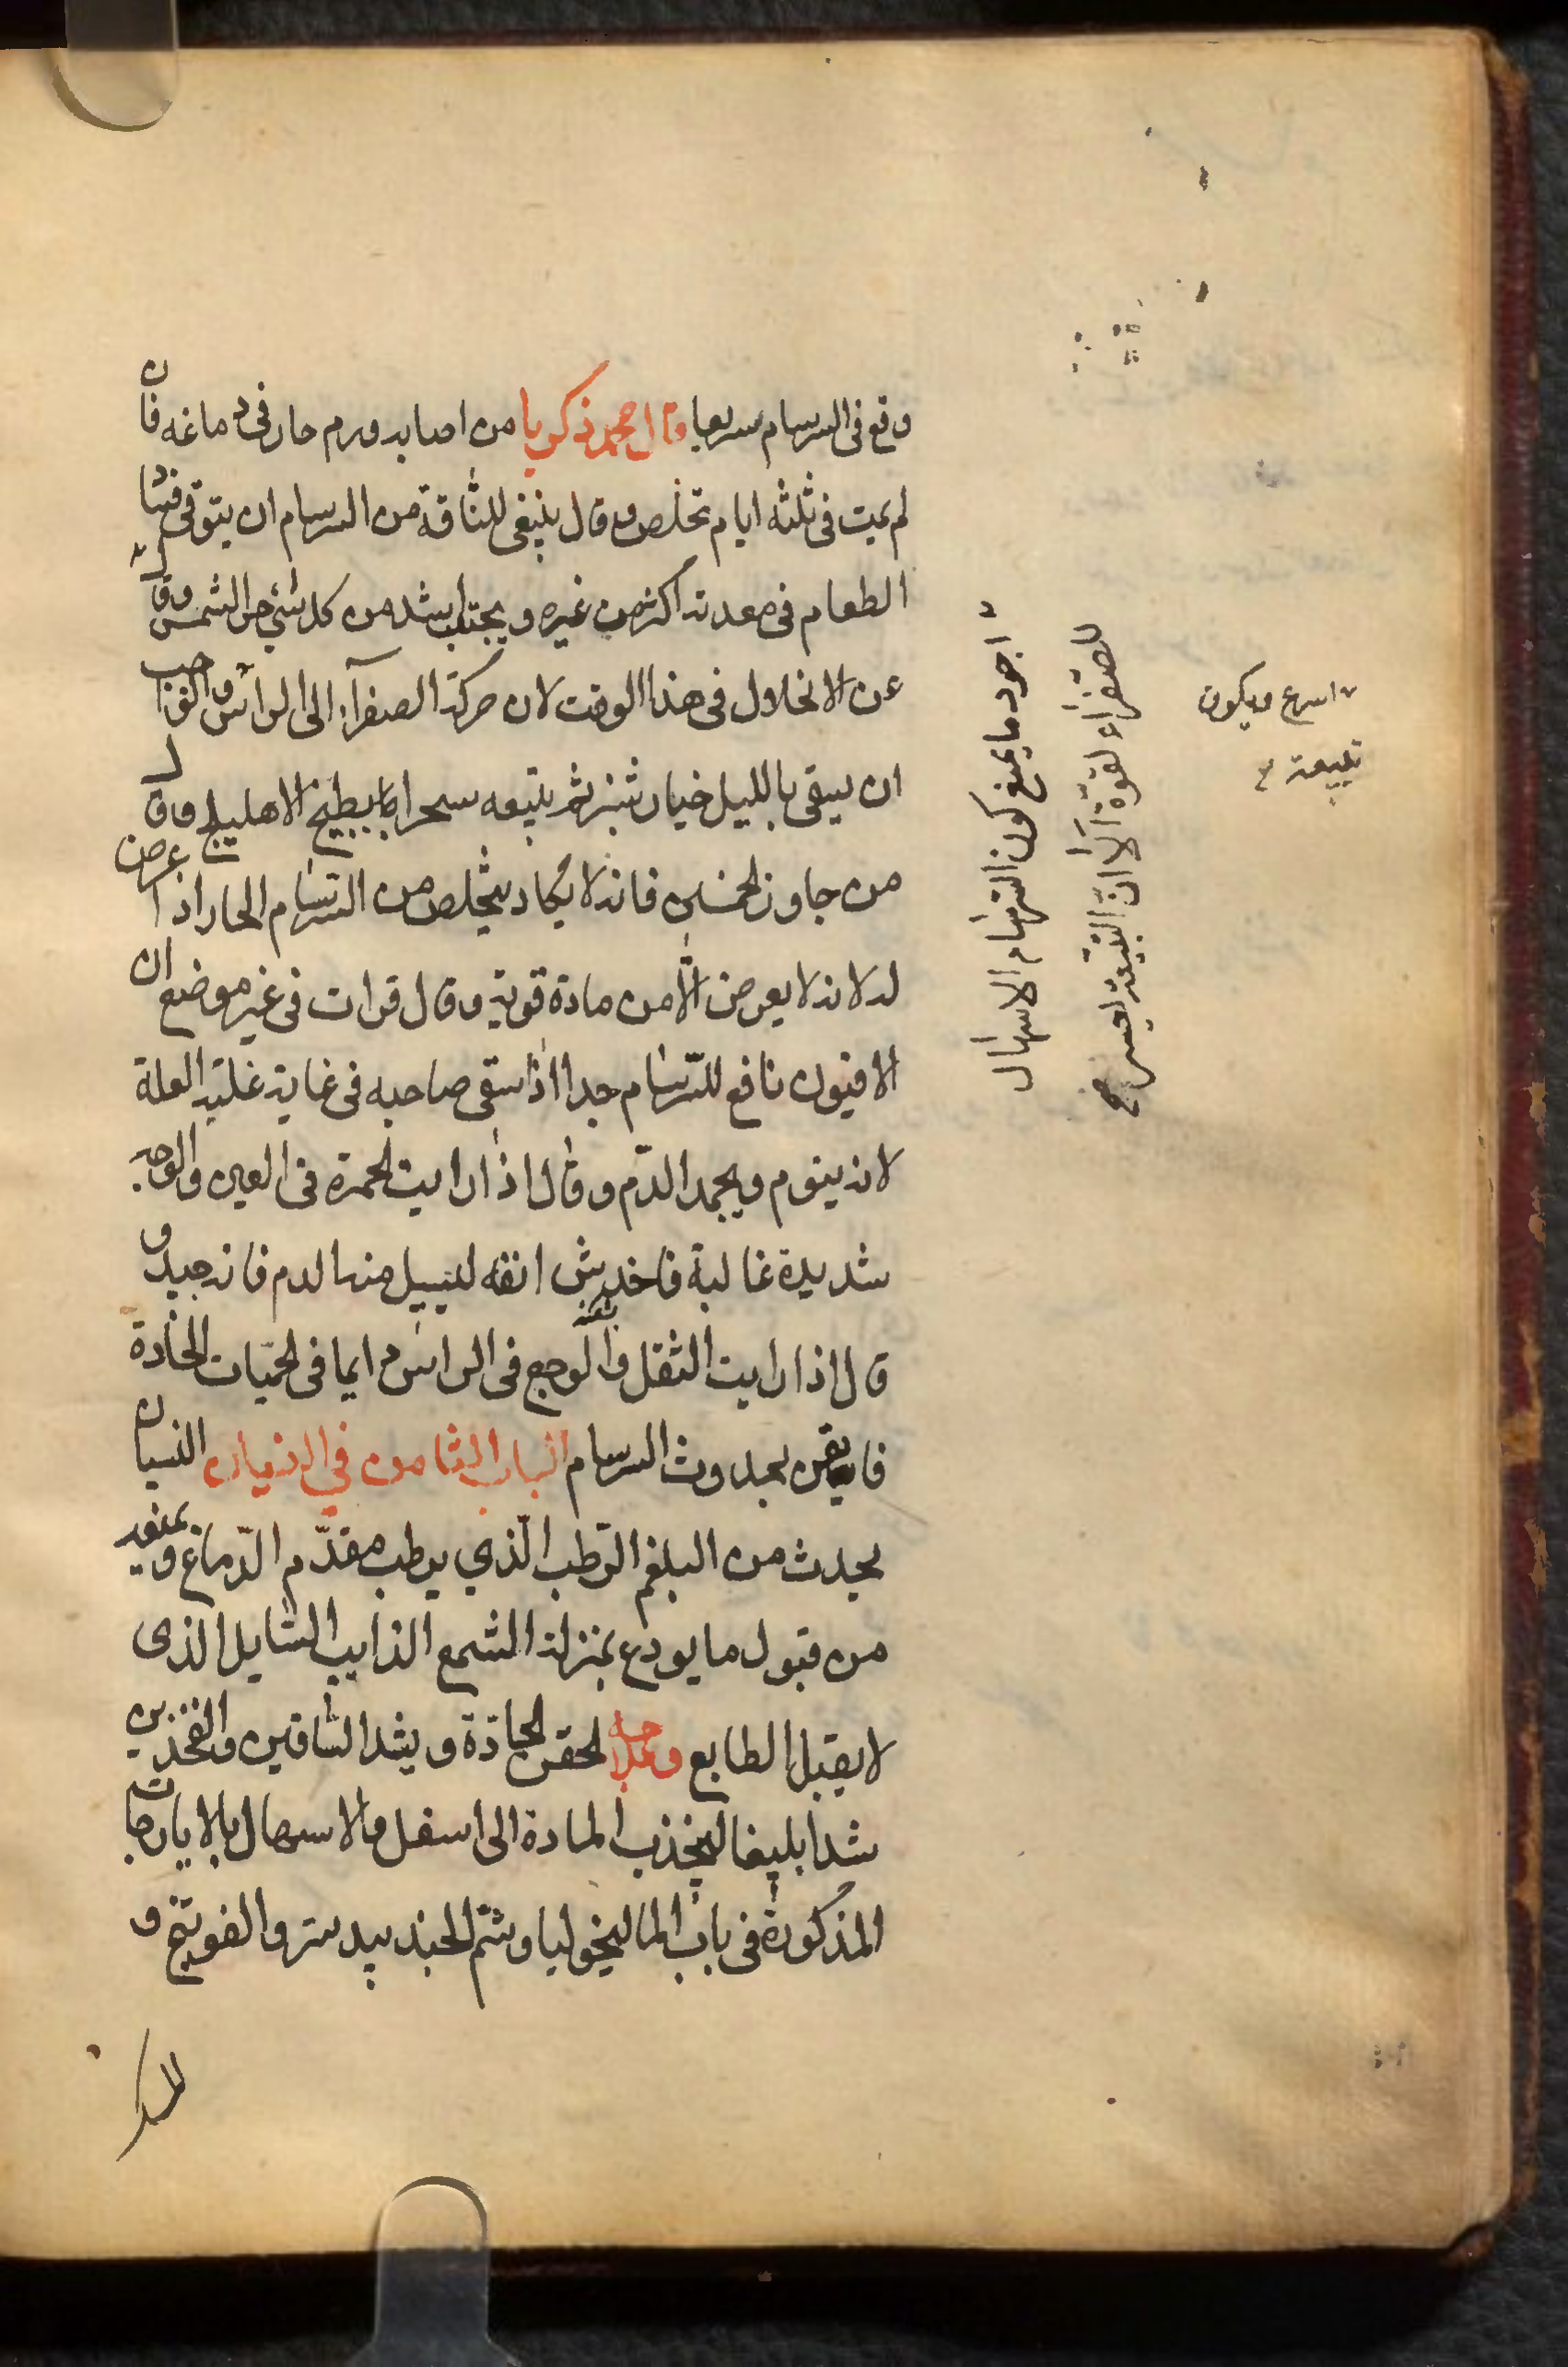 وقع فى السرسام سريعا قال احمد زكريا من اصابه ورم حار فى دماغه فان
لم يمت فى ثلثه ايام تخلص وقال ينبغى للناقة من السرسام ان يتوقى فساد
الطعام فى معدته اكثر من غيره ويجتنب اشد من كل شئ حر الشمس وقال
عن الانحلال فى هذا الوقت لان حركة الصفرآء الى الراس واجب
ان يسقى بالليل خيار شنبر ثم يتبعه سحرا بطبيخ الاهليلج وقال
من جاوز الخمسين فانه لا يكاد يتخلص من السرسام الحار اذا عرض
له لانه لا يعرض الا من مادة قوية وقال قرات فى غير موضع ان
الافيون نافع للسرسام جدا اذا سقى صاحبه فى غاية غلبة العلة
لانه ينوم ويجمد الدم وقال اذا رايت الحمرة فى العين والوجه
شديدة غالبة فاخدش انفه ليسيل منه الدم فانه جيد و
قال اذا رايت الثقل والوجع فى الراس دايما فى الحميات الحادة
فايقن بحدوث السرسام الباب الثامن في النسيان النسيان
يحدث من البلغم الرطب الذي يرطب مقدم الدماغ ويمنعه
من قبول ما يودع بمنزلة الشمع الذايب السايل الذى
لا يقبل الطابع وعلاجه الحقن الحادة ويشد الساقين والفخذين
شدا بليغا لينجذب المادة الى اسفل والاسهال بالايارجات
المذكورة فى باب الماليخوليا وشم الجندبيدستر والفوتنج و
اجود ما يمنع كون السرسام الاسهال
للصفراء لقوة الا ان النقيعة
اسرع ويكون
نقيعة